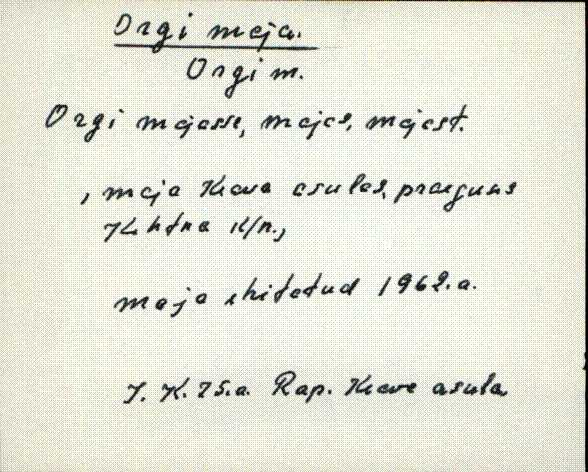 Orgi maja.
Orgi m.
Orgi majasse, majas, majast.
, maja Keava asulas, praeguse
Kehtna k/n.,
maja ehitatud 1962.a.
J. K. 75.a. Rap. Keava asula